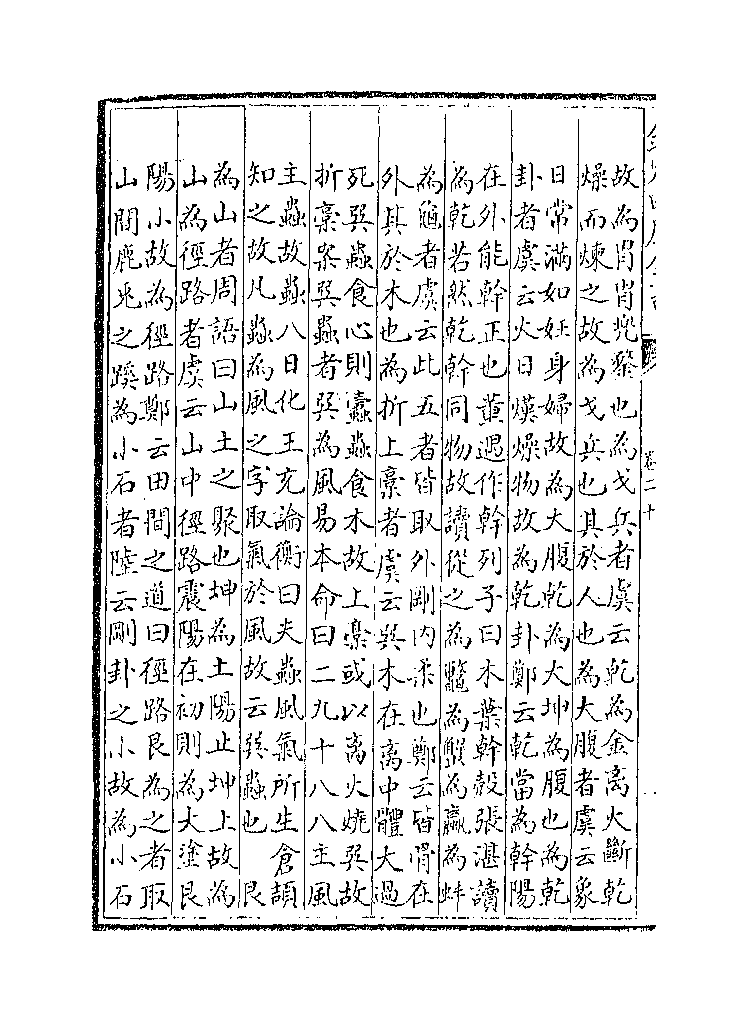 卷二十
故為胄胄兜鍪也為戈兵者虞云乾為金離火斷乾
燥而煉之故為戈兵也其於人也為大腹者虞云象
日常滿如妊身婦故為大腹乾為大坤為腹也為乾
卦者虞云火日熯燥物故為乾卦鄭云乾當為幹陽
在外能幹正也董遇作幹列子曰木葉幹殼張湛讀
為乾若然乾幹同物故讀從之為鼈為蟹為蠃為蚌
為龜者虞云此五者皆取外剛内柔也鄭云皆骨在
外其於木也為折上槀者虞云巽木在離中體大過
死巽蟲食心則蠹蟲食木故上槀或以離火燒巽故
折槀案巽蟲者巽為風易本命曰二九十八八主風
主蟲故蟲八日化王充論衡曰夫蟲風氣所生倉頡
知之故凡蟲為風之字取氣於風故云巽蟲也　艮
為山者周語曰山土之聚也坤為土陽止坤上故為
山為徑路者虞云山中徑路震陽在初則為大塗艮
陽小故為徑路鄭云田間之道曰徑路艮為之者取
山間鹿兎之蹊為小石者陸云剛卦之小故為小石